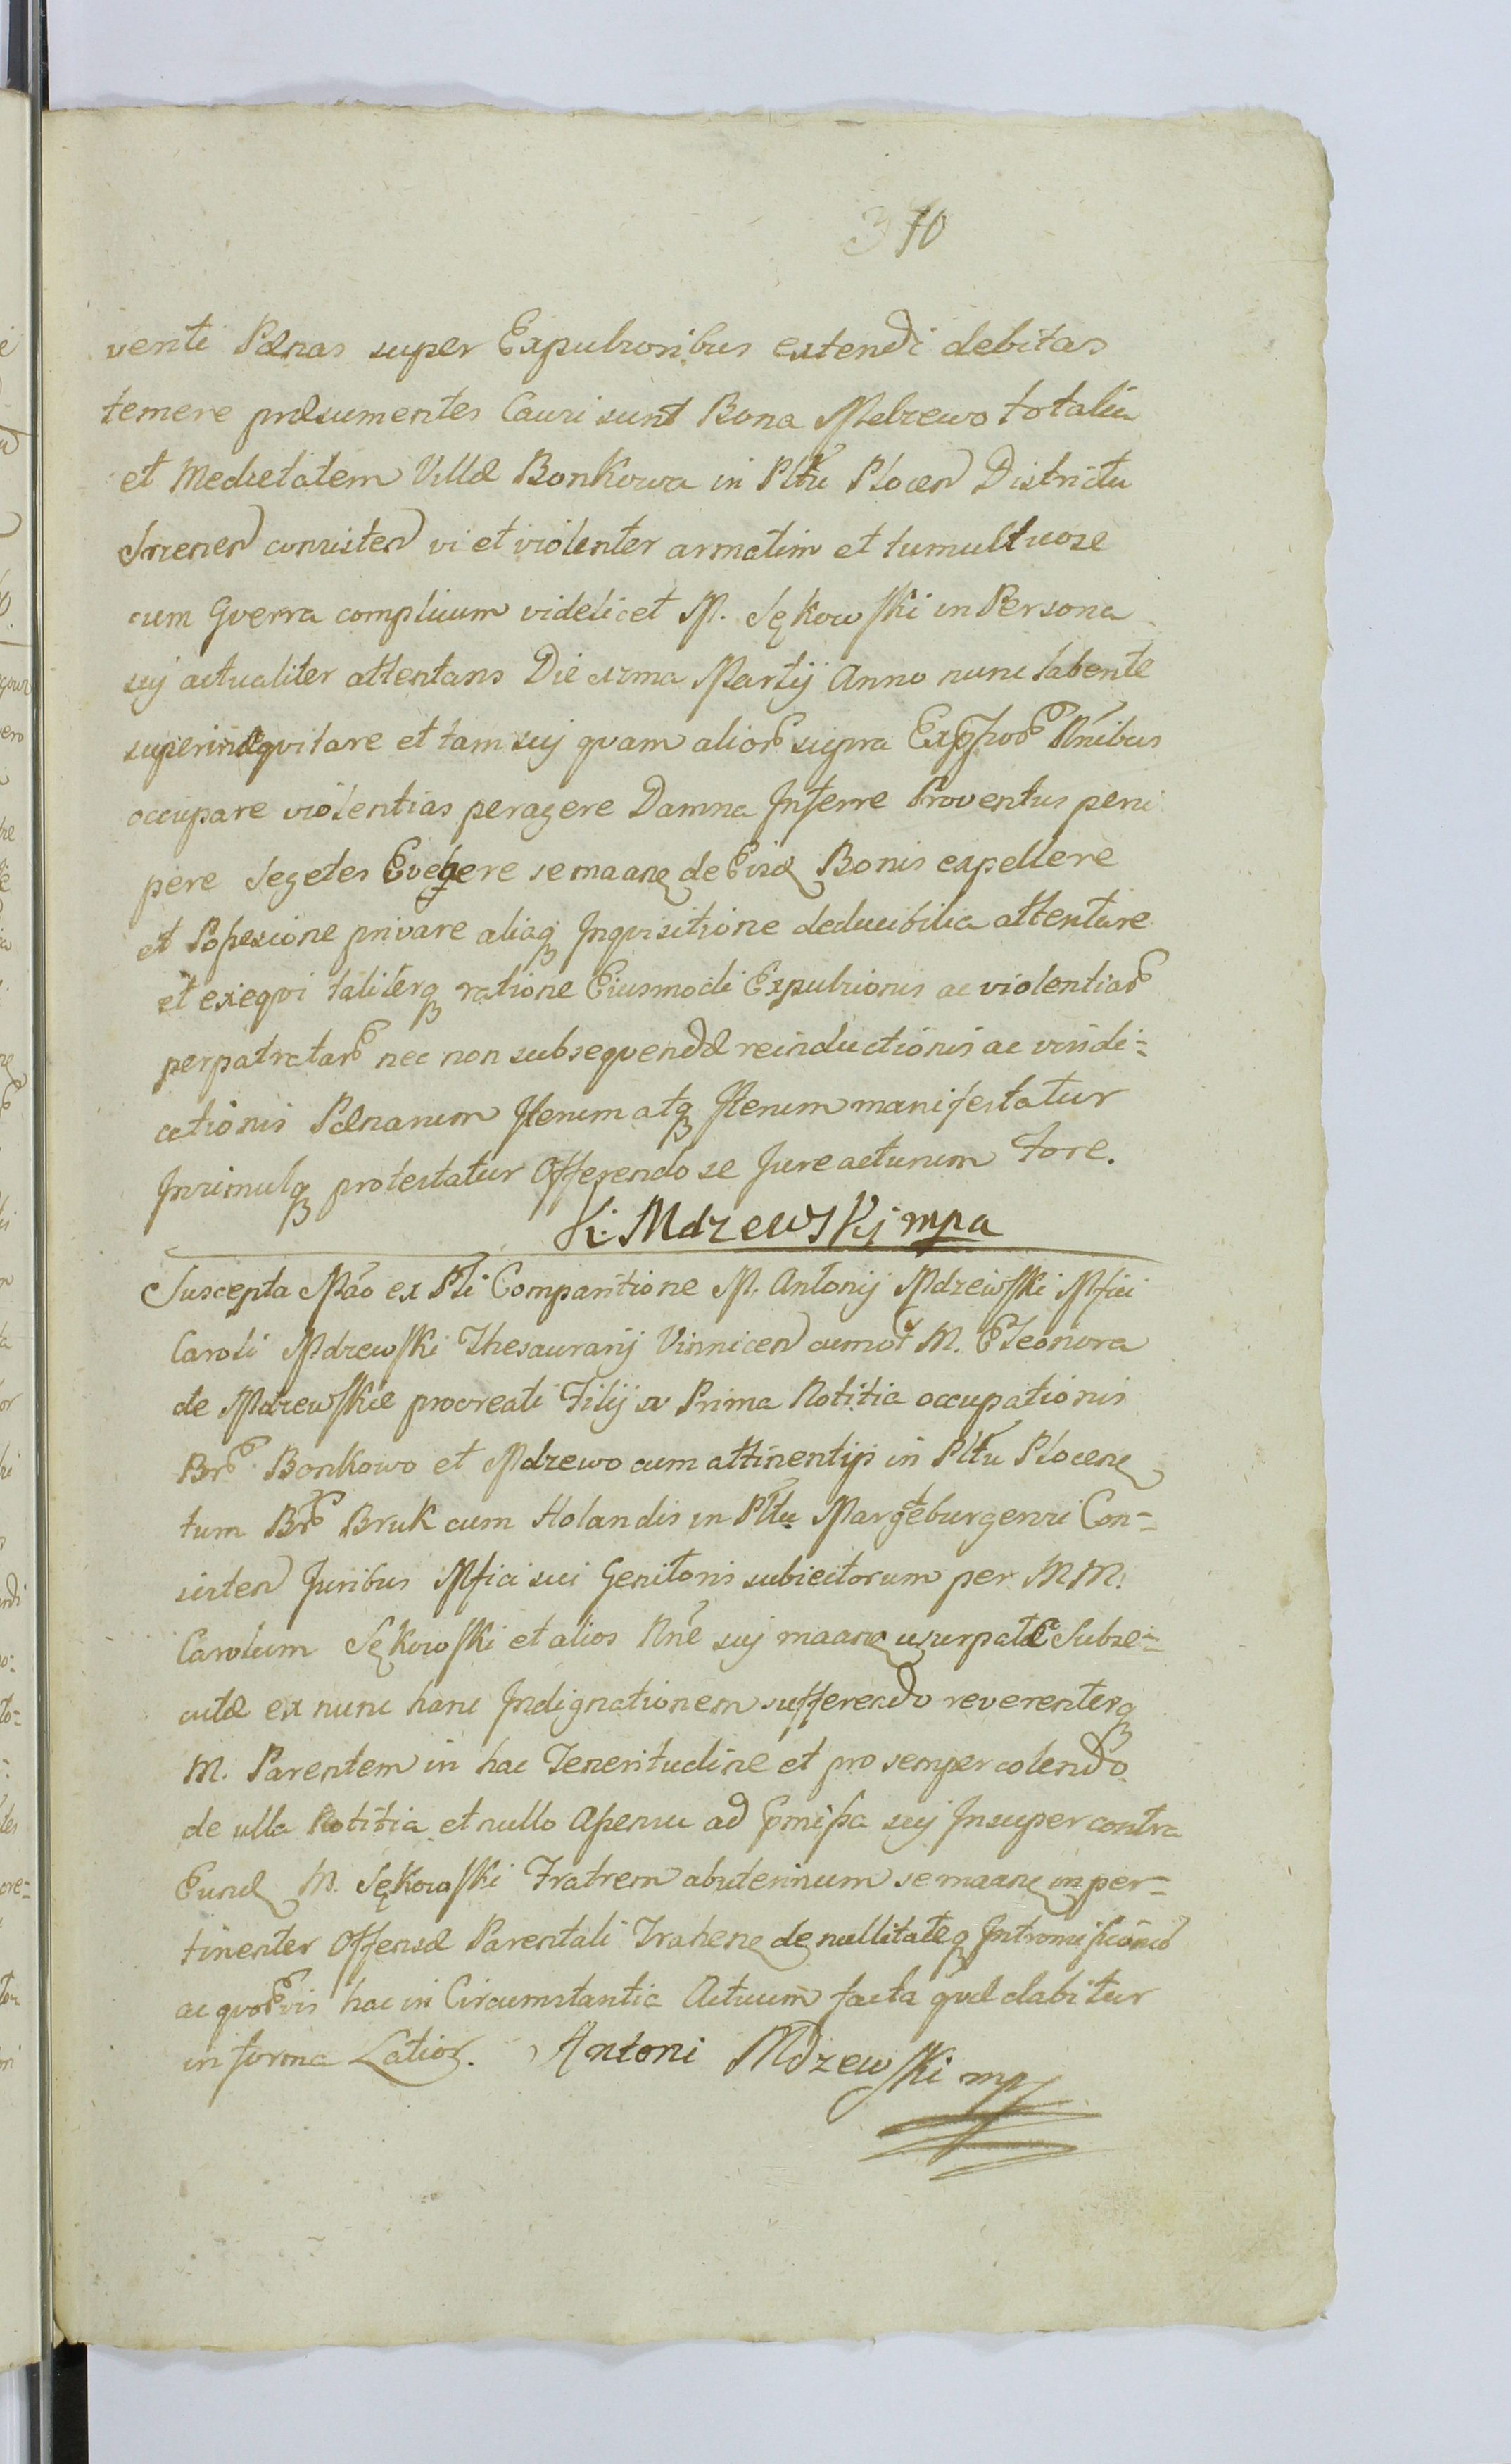 310
venti Pænas super Expulsionibus extendi debitas
temere præsumentes Causi sunt Bona Mdzewo totalia
et Medietatem Villæ Bonkowa in Pltũ Plocen Districtu
Srenen consisten vi et violenter armatim et tumultuose
cum Gverra complicum videlicet M. Sękowski in Persona
sŭj actualiter attentans Die Martij Anno nunc labente
superinæqvitare et tam sŭj qvam alior supra Nñibus
occupare violentias peragere Damna Inferre Proventus perci
pere Segetes Evehere semaane de Eisd Bonis expellere
et Possesione privare aliaq Inqvisitione deducibilia attentare
et exeqvi taliterq ratione Eiusmodi Expulsionis ac violentiar
perpatratar nec non subseqvendæ reinductionis ac vindi=
cationis Pænarum Iterum atq Iterum manifestatur
Insimulq protestatur Offerendo se Jure acturum fore.
K: Mdzewski mpa
Suscepta Mão ex Pli Comparitione M. Antonij Mdzewski Mfici
Caroli Mdzewski Thesaurarij Vinnicen cum M. Eleonora
de Mdzewskie procreati Filij a Prima Notitia occupationis
Bnr Bonkowo et Mdzewo cum attinentijs in Pltũ Plocen
tum Bnr Bruk cum Holandis in Pltu Margeburgensi Con=
sisten Juribus Mfici sui Genitoris subiectorum per MM.
Carolum Sękowski et alios Nñe sŭj maane usurpatæ Subse=
cutæ ex nunc hanc Indignationem sufferendo reverenterq
M. Parentem in hac Teneritudine et pro semper colendo
de ulla Notitia et nullo Assensu ad Comissa sŭj Insuper contra
Eund M. Sękowski Fratrem abuterinum semaane imper=
tinenter Offensæ Parentali Trahen de nullitateq Intromissionis
ac qvorvis hac in Circumstantia Actuum facta
in forma Latior. Antoni Mdzewski mp